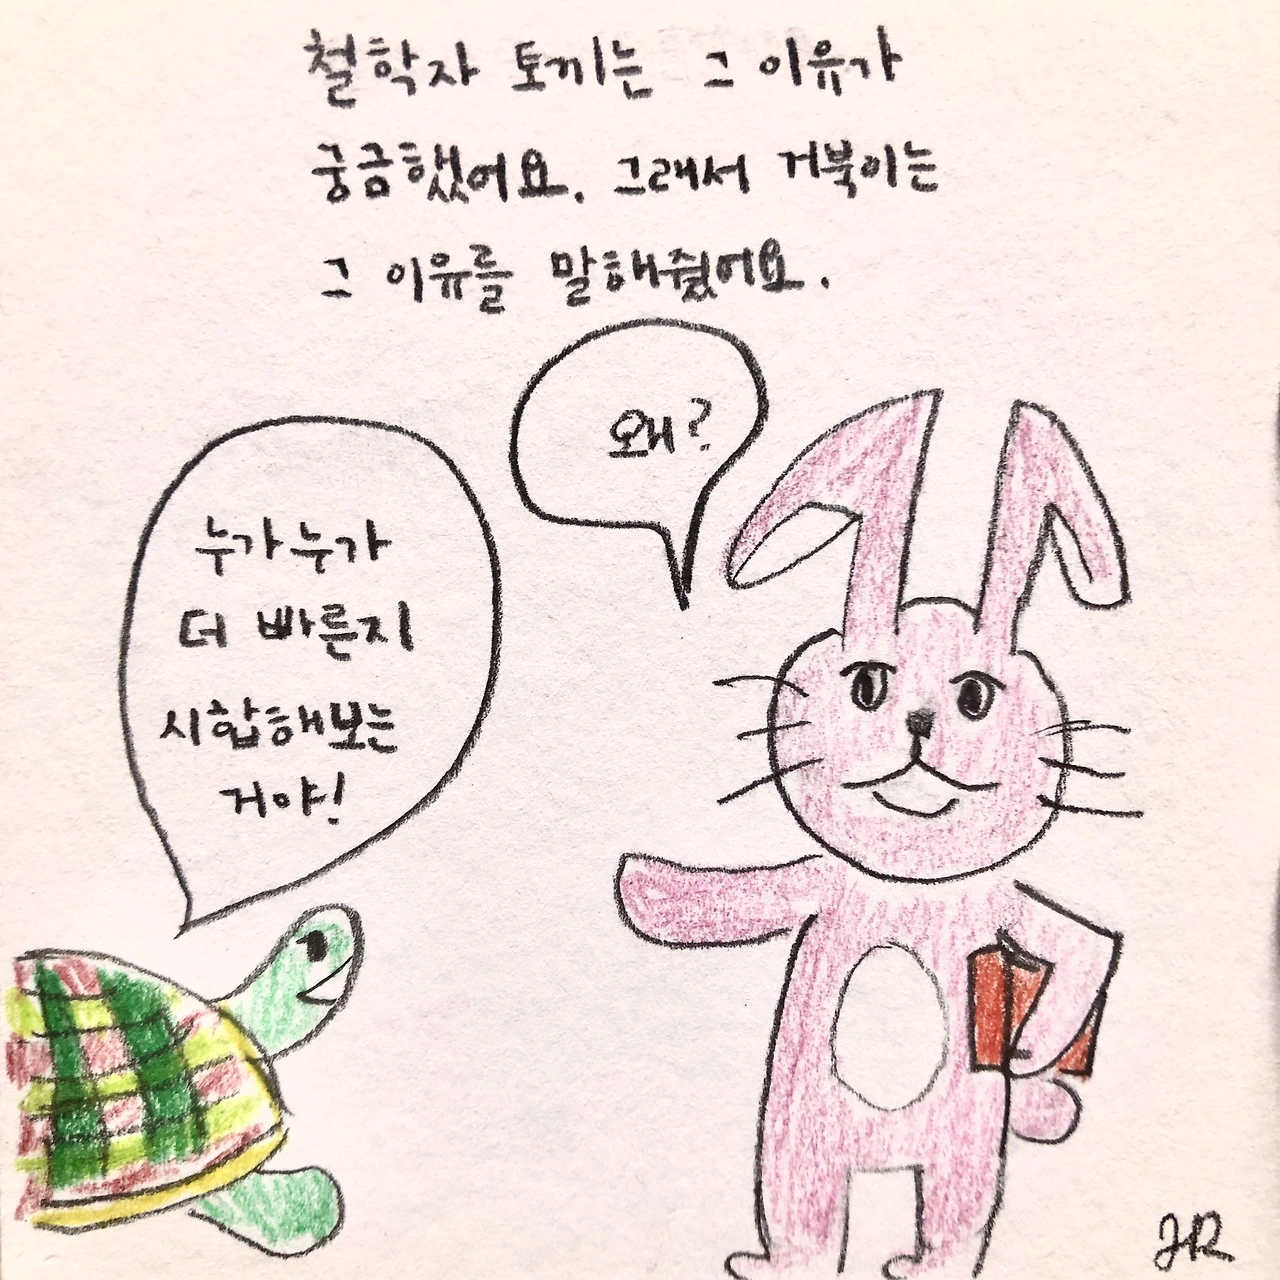 철학자 토끼는 그 이유가
궁금했어요. 그래서 거북이는
그 이유를 말해줬어요.
왜?
누가누가
더 빠른지
시합해보는
거야!
JR